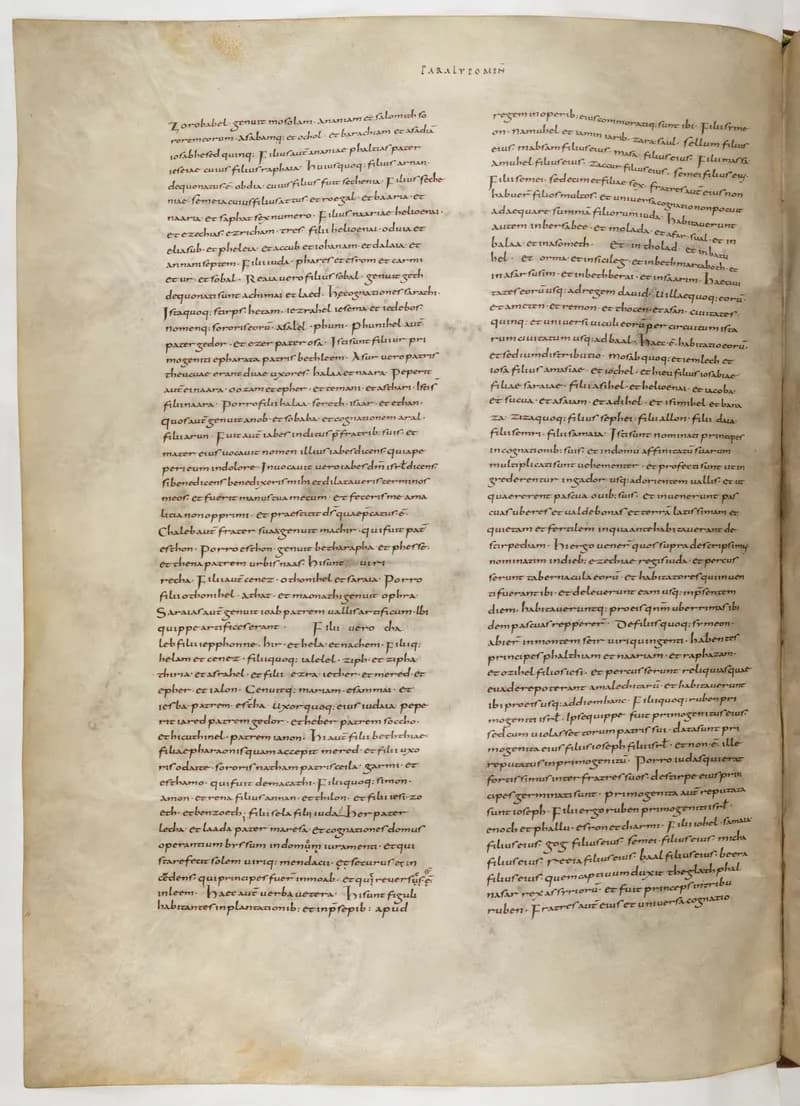 PARALYPOMEN̄
Zorobabel · genuit mosolam · ananiam et salomith so
rorem eorum · asabamq; et ochol · et barachiam et asadiā
iosabhesed quinq; Filius aut̄ ananiae phaltias pater
ieseiae cuius filius raphaia · huius quoq; filius arnan ·
de quo natus ē obdia cuius filius fuit sechenia · Filius seche
niae · semeia cuius filii sattus · et roegal · et baaria · et
naaria · et saphat sex numero · Filius naariae helioenai ·
et ezechias · ezricham · tres · filii helioenai · oduia et
eliasub · et pheleia · et accub et iohanam · et dalaia · et
annani septem · Filii iuda · phares et esrom et carmi
et ur · et sobal · Reaia uero filius sobal · genuit geth
de quo nati sunt achimai et laed · Hae cognationes sarathi ·
Ista quoq; stirps hetam · iezrahel iesema et iedebos ·
nomenq; sororis eorū · asalel · phuni · Phunihel aut̄
pater gedor · et ezer pater osa · Isti sunt filii ur pri
mogeniti ephrata patris bethleem · Asur uero patris
theucuae erant duae uxores · halaa et naara · Peperit
aut̄ ei naara · oozam et epher · et temani · et asthari · Isti s̄
filii naara · Porro filii halaa · sereth · isaar · et ethan ·
quos aut̄ genuit anob · et sobaba · et cognationem aral ·
filii arun · Fuit aut̄ iabes inclitus p̄ fratrib; suis · et
mater eius uocauit nomen illius iabes dicens · quia pe
peri eum in dolore · Inuocauit uero iabes dm̄ isrl̄ dicens ·
si benedicens benedixeris mihi et dilataueris terminos
meos · et fuerit manus tua mecum · et feceris me a ma
litia non opprimi · et praestitit ds̄ quae p̄catus ē ·
Chaleb aut̄ frater suaa genuit machir · qui fuit pat̄
esthon · Porro esthon · genuit betharapha · et phesse ·
et thena patrem urbis naas · Hi sunt uiri
recha · Filii aut̄ cenez · othonihel et saraia · Porro
filii othonihel · athat · et maonathi genuit ophra ·
Saraias aut̄ genuit ioab patrem uallis artificum · Ibi
quippe artifices erant · Filii uero cha
leb filii iepphonne · hir · et hela et nachem · Filiiq;
helam et cenez · filii quoq; ialelel · ziph · et zipha
thiria et asrahel · et filii ezra iether · et mered et
epher · et ialon · Genuitq; mariam · et sammai · et
iesba · patrem · esthca · Uxor quoq; eius iudaia pepe
rit iared patrem gedor · et heber patrem soccho ·
et hicuthihel · patrem ianon · Hi aut̄ filii beththiae ·
filiae pharaonis quam accepit mered · et filii uxo
ris odaiae · sororis natham patris ceila · garmi · et
esthamo · qui fuit de macathi · Filii quoq; simon ·
amon · et rena filius annan · et thilon · et filii iesi · zo
eth · et benzoeth; filii sela filii iuda · Her pater
lecha · et laada pater maresa · et cognationes domus
operantium byssum in domū iuramenti · et qui
stare fecit solem uiriq; mendacii · et securus et in
cēdens · qui principes fuer̄ in moab · et qui reuersi st̄
in leem · Haec aut̄ uerba uetera · Hi sunt figuli
habitantes in plantationib; et in p̄sepib; apud
regem in operib; eius commoratiq; sunt ibi · Filii syme
on · namuhel et iamin iarib · zara saul · sellum filius
eius · mabsam filius eius · masa filius eius · Filii masa ·
amuhel filius eius · zaccur filius eius · semei filius eius ·
Filii semei · sedecim et filiae sex · fratres aut̄ eius non
habuer̄ filios multos · et uniuersa cognatio non potuit
adaequare summā filiorum iuda · habitauerunt
autem in bersabee · et molada · et asar sual · et in
balaa · et in asometh · et in tholad · et in batu
hel · et orma · et in siceleg · et in bethmarchaboth · et
in asar susim · et in bethberai · et in saarim · Hae ciui
tates eorū usq; ad regem dauid · Uillae quoq; eorū ·
et am et en · et remon · et thocen · et asan · ciuitates
quinq; et uniuersi uiculi eorū per circuitum ista
rum ciuitatum usq; ad baal · Haec ē habitatio eorū
et sedium distributio · mosab quoq; et iemlech et
iosa filius amasiae · et iohel · et hieu filius iosabiae
filiae saraiae · filii asihel · et helioenai · et iacoba
et sucua · et asaiam · et adihel · et isimihel et bana
za · ziza quoq; filius sephei · filii allon · filii daia ·
filii semri · filii samaia · Isti sunt nominati principes
in cognationib; suis · et in domu affinitatū suarum
multiplicati sunt uehementer · et profecti sunt ut in
grederentur in gador · usq; ad orientem uallis · et ut
quaererent pascua ouib; suis · et inuenerunt pas
cuas uberes et ualde bonas et terrā latissimam et
quietam et fertilem in qua ante habitauerant de
stirpe cham · Hi ergo uener̄ quos supra descripsimus
nominatim in dieb; ezechiae regis iuda · et percus
serunt tabernacula eorū · et habitatores qui inuen
ti fuerant ibi · et deleuerunt eam usq; in p̄sentem
diem · habitaueruntq; pro eis qm̄ uberrimas ibi
dem pascuas repperer̄ · De filiis quoq; symeon ·
abier̄ in montem seir uiri quingenti · habentes
principes phalthiam et naariam · et raphaiam ·
et ozihel filios iesi · et percusserunt reliquias quae
euadere poterant amalechitarū · et habitauerunt
ibi pro eis usq; ad diem hanc · Filii quoq; ruben pri
mogeniti isrl̄ · Ipse quippe fuit primogenitus eius ·
sed cum uiolasset torum patris sui · data sunt pri
mogenita eius filiis ioseph filii isrl̄ · et non ē ille
reputatus in primogenitū · Porro iudas qui erat
fortissimus inter fratres suos · de stirpe eius prin
cipes germinati sunt · primogenita aut̄ reputata
sunt ioseph · Filii ergo ruben primogeniti isrl̄ ·
enoch et phallu · esron et charmi · Filii iohel · samaia
filius eius · gog filius eius · semei filius eius · micha
filius eius · receia filius eius · baal filius eius · beera
filius eius quem captiuum duxit theglathphal
nasar rex assyriorū · et fuit princeps in tribu
ruben · Fratres aut̄ eius et uniuersa cognatio